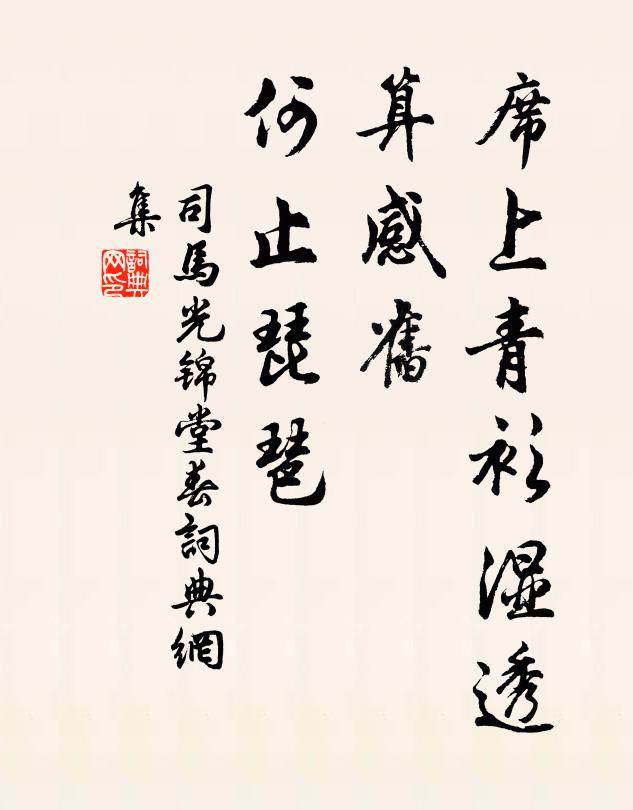 席上青衫濕透
算感舊
何止琵琶
司馬光錦堂春詞典網
集
詞典
网印